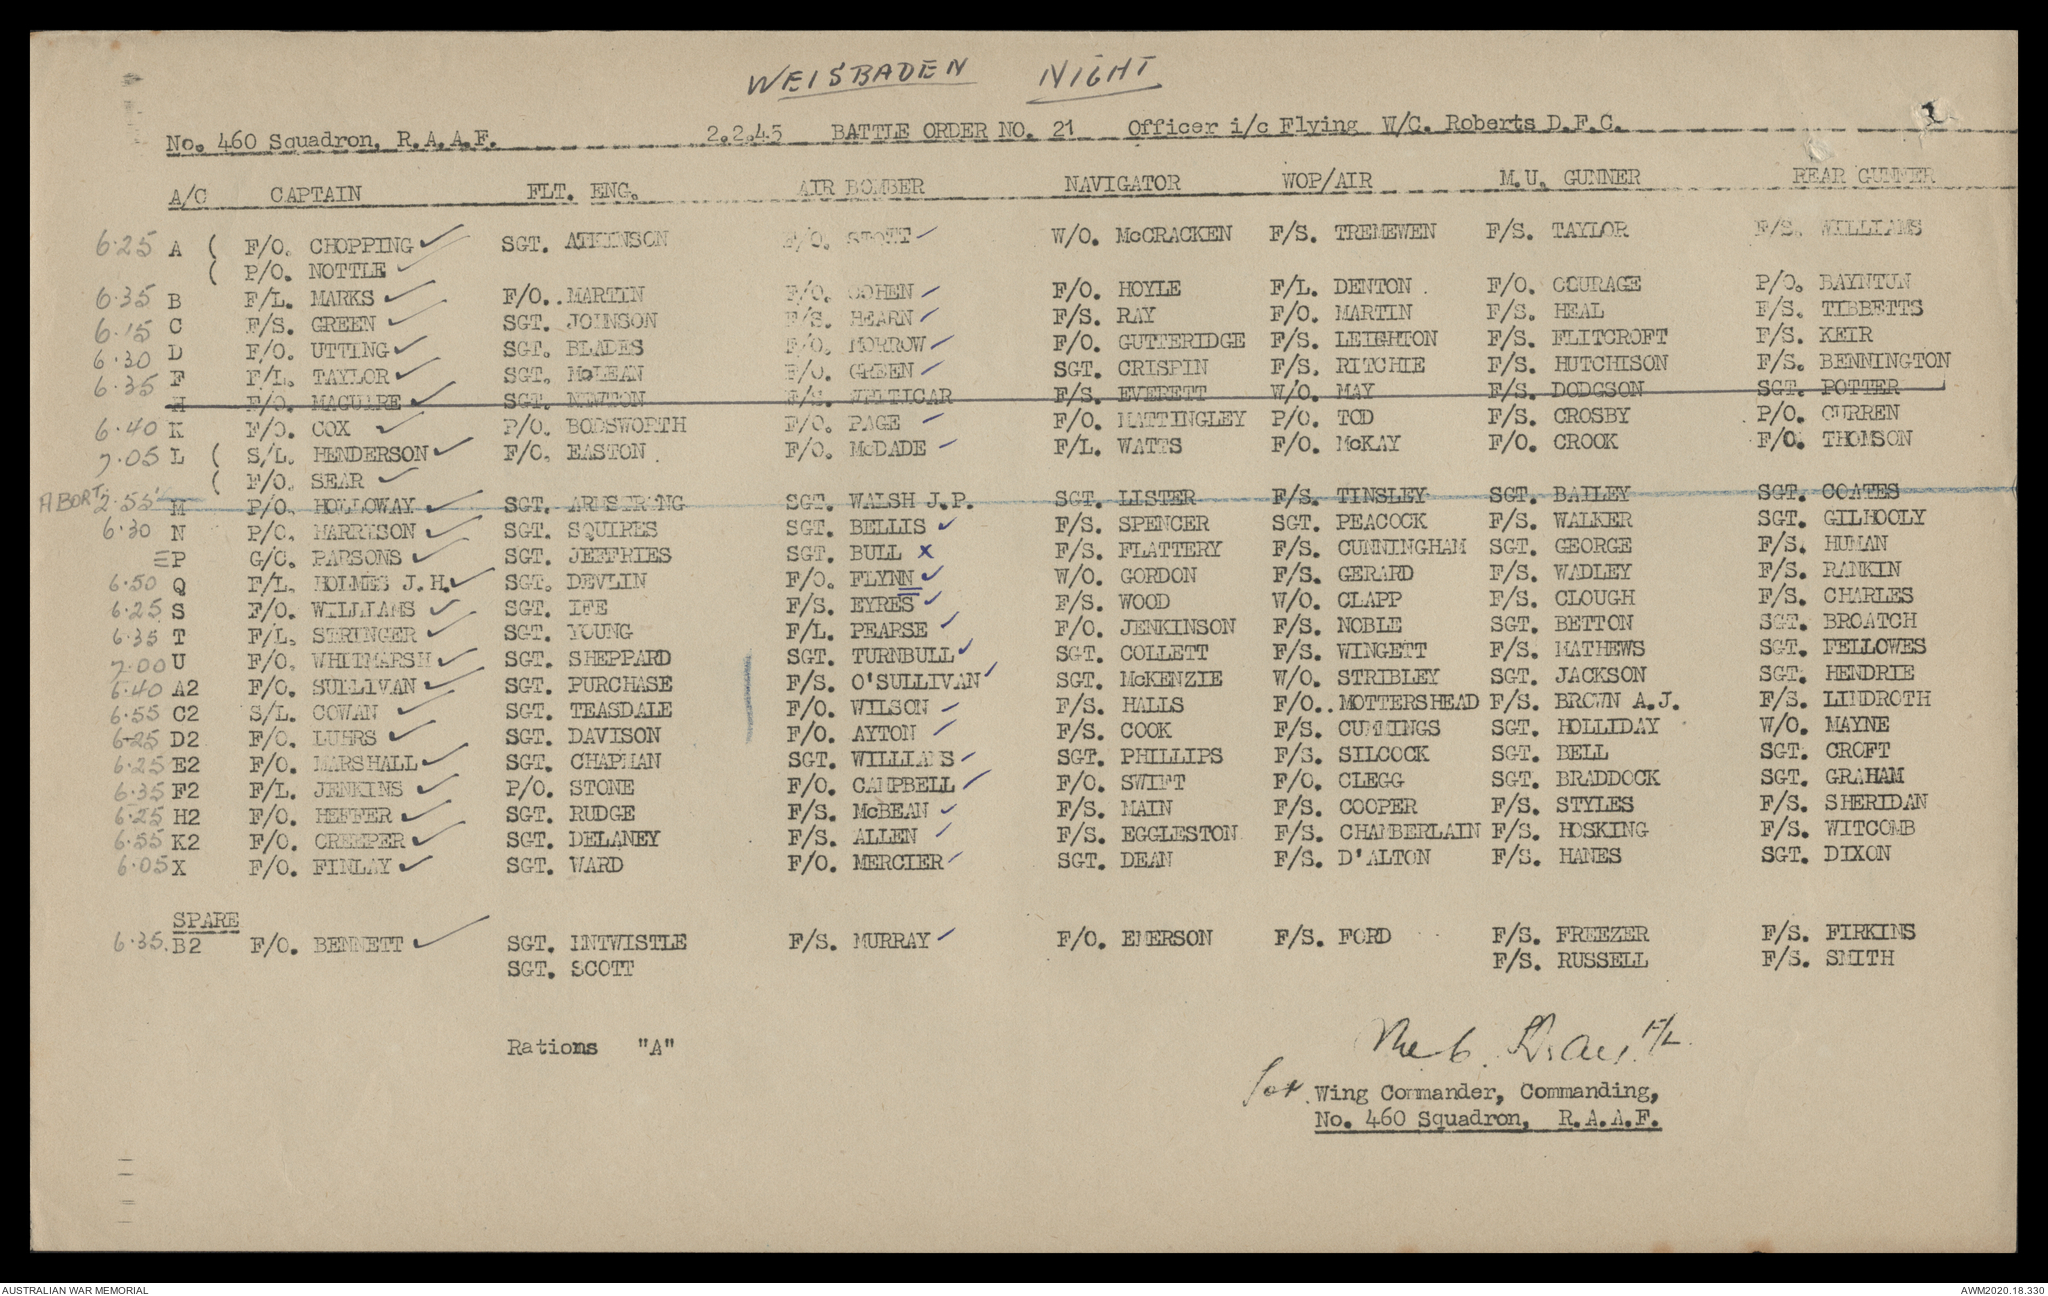 WEISBADEN NIGHT
No. 460 Squadron, R.A.A.F. 2.2.45 BATTLE ORDER NO. 21 Officer i/c Flying W/C. Roberts D.F.C.
A/C CAPTAIN FLT. ENG. AIR BOMBER NAVIGATOR WOP/AIR M.U. GUNNER REAR GUNNER
6.25 A ( F/O. CHOPPING ✓ SGT. ATKINSON F/O. STOTT ✓ W/O. McCRACKEN F/S. TREMEWEN F/S. TAYLOR F/S. WILLIAMS
( P/O. NOTTLE ✓
6.35 B F/L. MARKS ✓ F/O. MARTIN F/O. COHEN ✓ F/O. HOYLE F/L. DENTON F/O. COURAGE P/O. BAYNTUN
6.15 C F/S. GREEN ✓ SGT. JOHNSON F/S. HEARN ✓ F/S. RAY F/O. MARTIN F/S. HEAL F/S. TIBBETTS
6.30 D F/O. UTTING ✓ SGT. BLADES F/O. MORROW ✓ F/O. GUTTERIDGE F/S. LEIGHTON F/S. FLITCROFT F/S. KEIR
6.35 F F/L. TAYLOR ✓ SGT. McLEAN F/O. GREEN ✓ SGT. CRISPIN F/S. RITCHIE F/S. HUTCHISON F/S. BENNINGTON
H F/O. MAGUIRE ✓ SGT. NEWTON F/S. F/S. EVERETT W/O. MAY F/S. DODGSON SGT. POTTER
6.40 K F/O. COX ✓ P/O. BODSWORTH F/O. PAGE ✓ F/O. MATTINGLEY P/O. TOD F/S. CROSBY P/O. CURREN
7.05 L ( S/L. HENDERSON ✓ F/O. EASTON F/O. McDADE ✓ F/L. WATTS F/O. McKAY F/O. CROOK F/O. THOMSON
( F/O. SEAR ✓
ABORT. 2.55 M P/O. HOLLOWAY ✓ SGT. ARMSTRONG SGT. WALSH J.P. SGT. LISTER F/S. TINSLEY SGT. BAILEY SGT. COATES
6.30 N P/O. HARRISON ✓ SGT. SQUIRES SGT. BELLIS ✓ F/S. SPENCER SGT. PEACOCK F/S. WALKER SGT. GILHOOLY
P G/C. PARSONS ✓ SGT. JEFFRIES SGT. BULL x F/S. FLATTERY F/S. CUNNINGHAM SGT. GEORGE F/S. HUMAN
6.50 Q F/L. HOLMES J.H. ✓ SGT. DEVLIN F/O. FLYNN ✓ W/O. GORDON F/S. GERARD F/S. WADLEY F/S. RANKIN
6.25 S F/O. WILLIAMS ✓ SGT. IFE F/S. EYRES ✓ F/S. WOOD W/O. CLAPP F/S. CLOUGH F/S. CHARLES
6.35 T F/L. STRINGER ✓ SGT. YOUNG F/L. PEARSE ✓ F/O. JENKINSON F/S. NOBLE SGT. BETTON SGT. BROATCH
7.00 U F/O. WHITMARSH ✓ SGT. SHEPPARD SGT. TURNBULL ✓ SGT. COLLETT F/S. WINGETT F/S. MATHEWS SGT. FELLOWES
6.40 A2 F/O. SULLIVAN ✓ SGT. PURCHASE F/S. O'SULLIVAN ✓ SGT. McKENZIE W/O. STRIBLEY SGT. JACKSON SGT. HENDRIE
6.55 C2 S/L. COWAN ✓ SGT. TEASDALE F/O. WILSON ✓ F/S. HALLS F/O. MOTTERSHEAD F/S. BROWN A.J. F/S. LINDROTH
6.25 D2 F/O. LUHRS ✓ SGT. DAVISON F/O. AYTON ✓ F/S. COOK F/S. CUMMINGS SGT. HOLLIDAY W/O. MAYNE
6.25 E2 F/O. MARSHALL ✓ SGT. CHAPMAN SGT. WILLIAMS ✓ SGT. PHILLIPS F/S. SILCOCK SGT. BELL SGT. CROFT
6.35 F2 F/L. JENKINS ✓ P/O. STONE F/O. CAMPBELL ✓ F/O. SWIFT F/O. CLEGG SGT. BRADDOCK SGT. GRAHAM
6.25 H2 F/O. HEFFER ✓ SGT. RUDGE F/S. McBEAN ✓ F/S. MAIN F/S. COOPER F/S. STYLES F/S. SHERIDAN
6.55 K2 F/O. CREEPER ✓ SGT. DELANEY F/S. ALLEN ✓ F/S. EGGLESTON F/S. CHAMBERLAIN F/S. HOSKING F/S. WITCOMB
6.05 X F/O. FINLAY ✓ SGT. WARD F/O. MERCIER ✓ SGT. DEAN F/S. D'ALTON F/S. HANES SGT. DIXON
SPARE
6.35. B2 F/O. BENNETT ✓ SGT. INTWISTLE F/S. MURRAY ✓ F/O. EMERSON F/S. FORD F/S. FREEZER F/S. FIRKINS
SGT. SCOTT F/S. RUSSELL F/S. SMITH
Rations "A"
F/L.
for Wing Commander, Commanding,
No. 460 Squadron, R.A.A.F.
AUSTRALIAN WAR MEMORIAL AWM2020.18.330